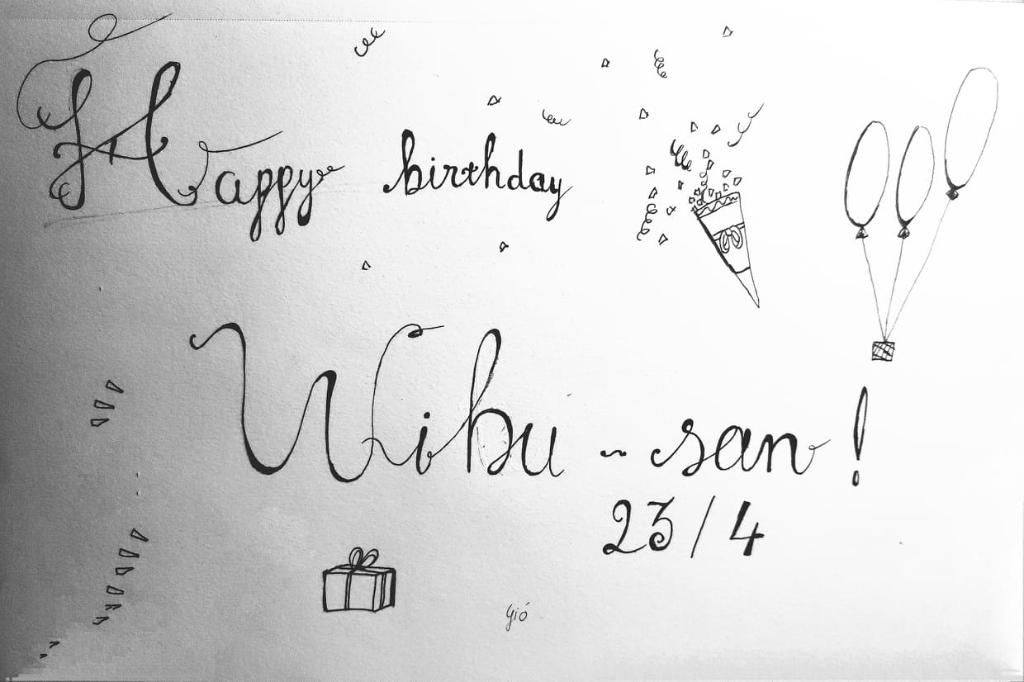 Happy birthday
Wibu - san !
23/4
gió